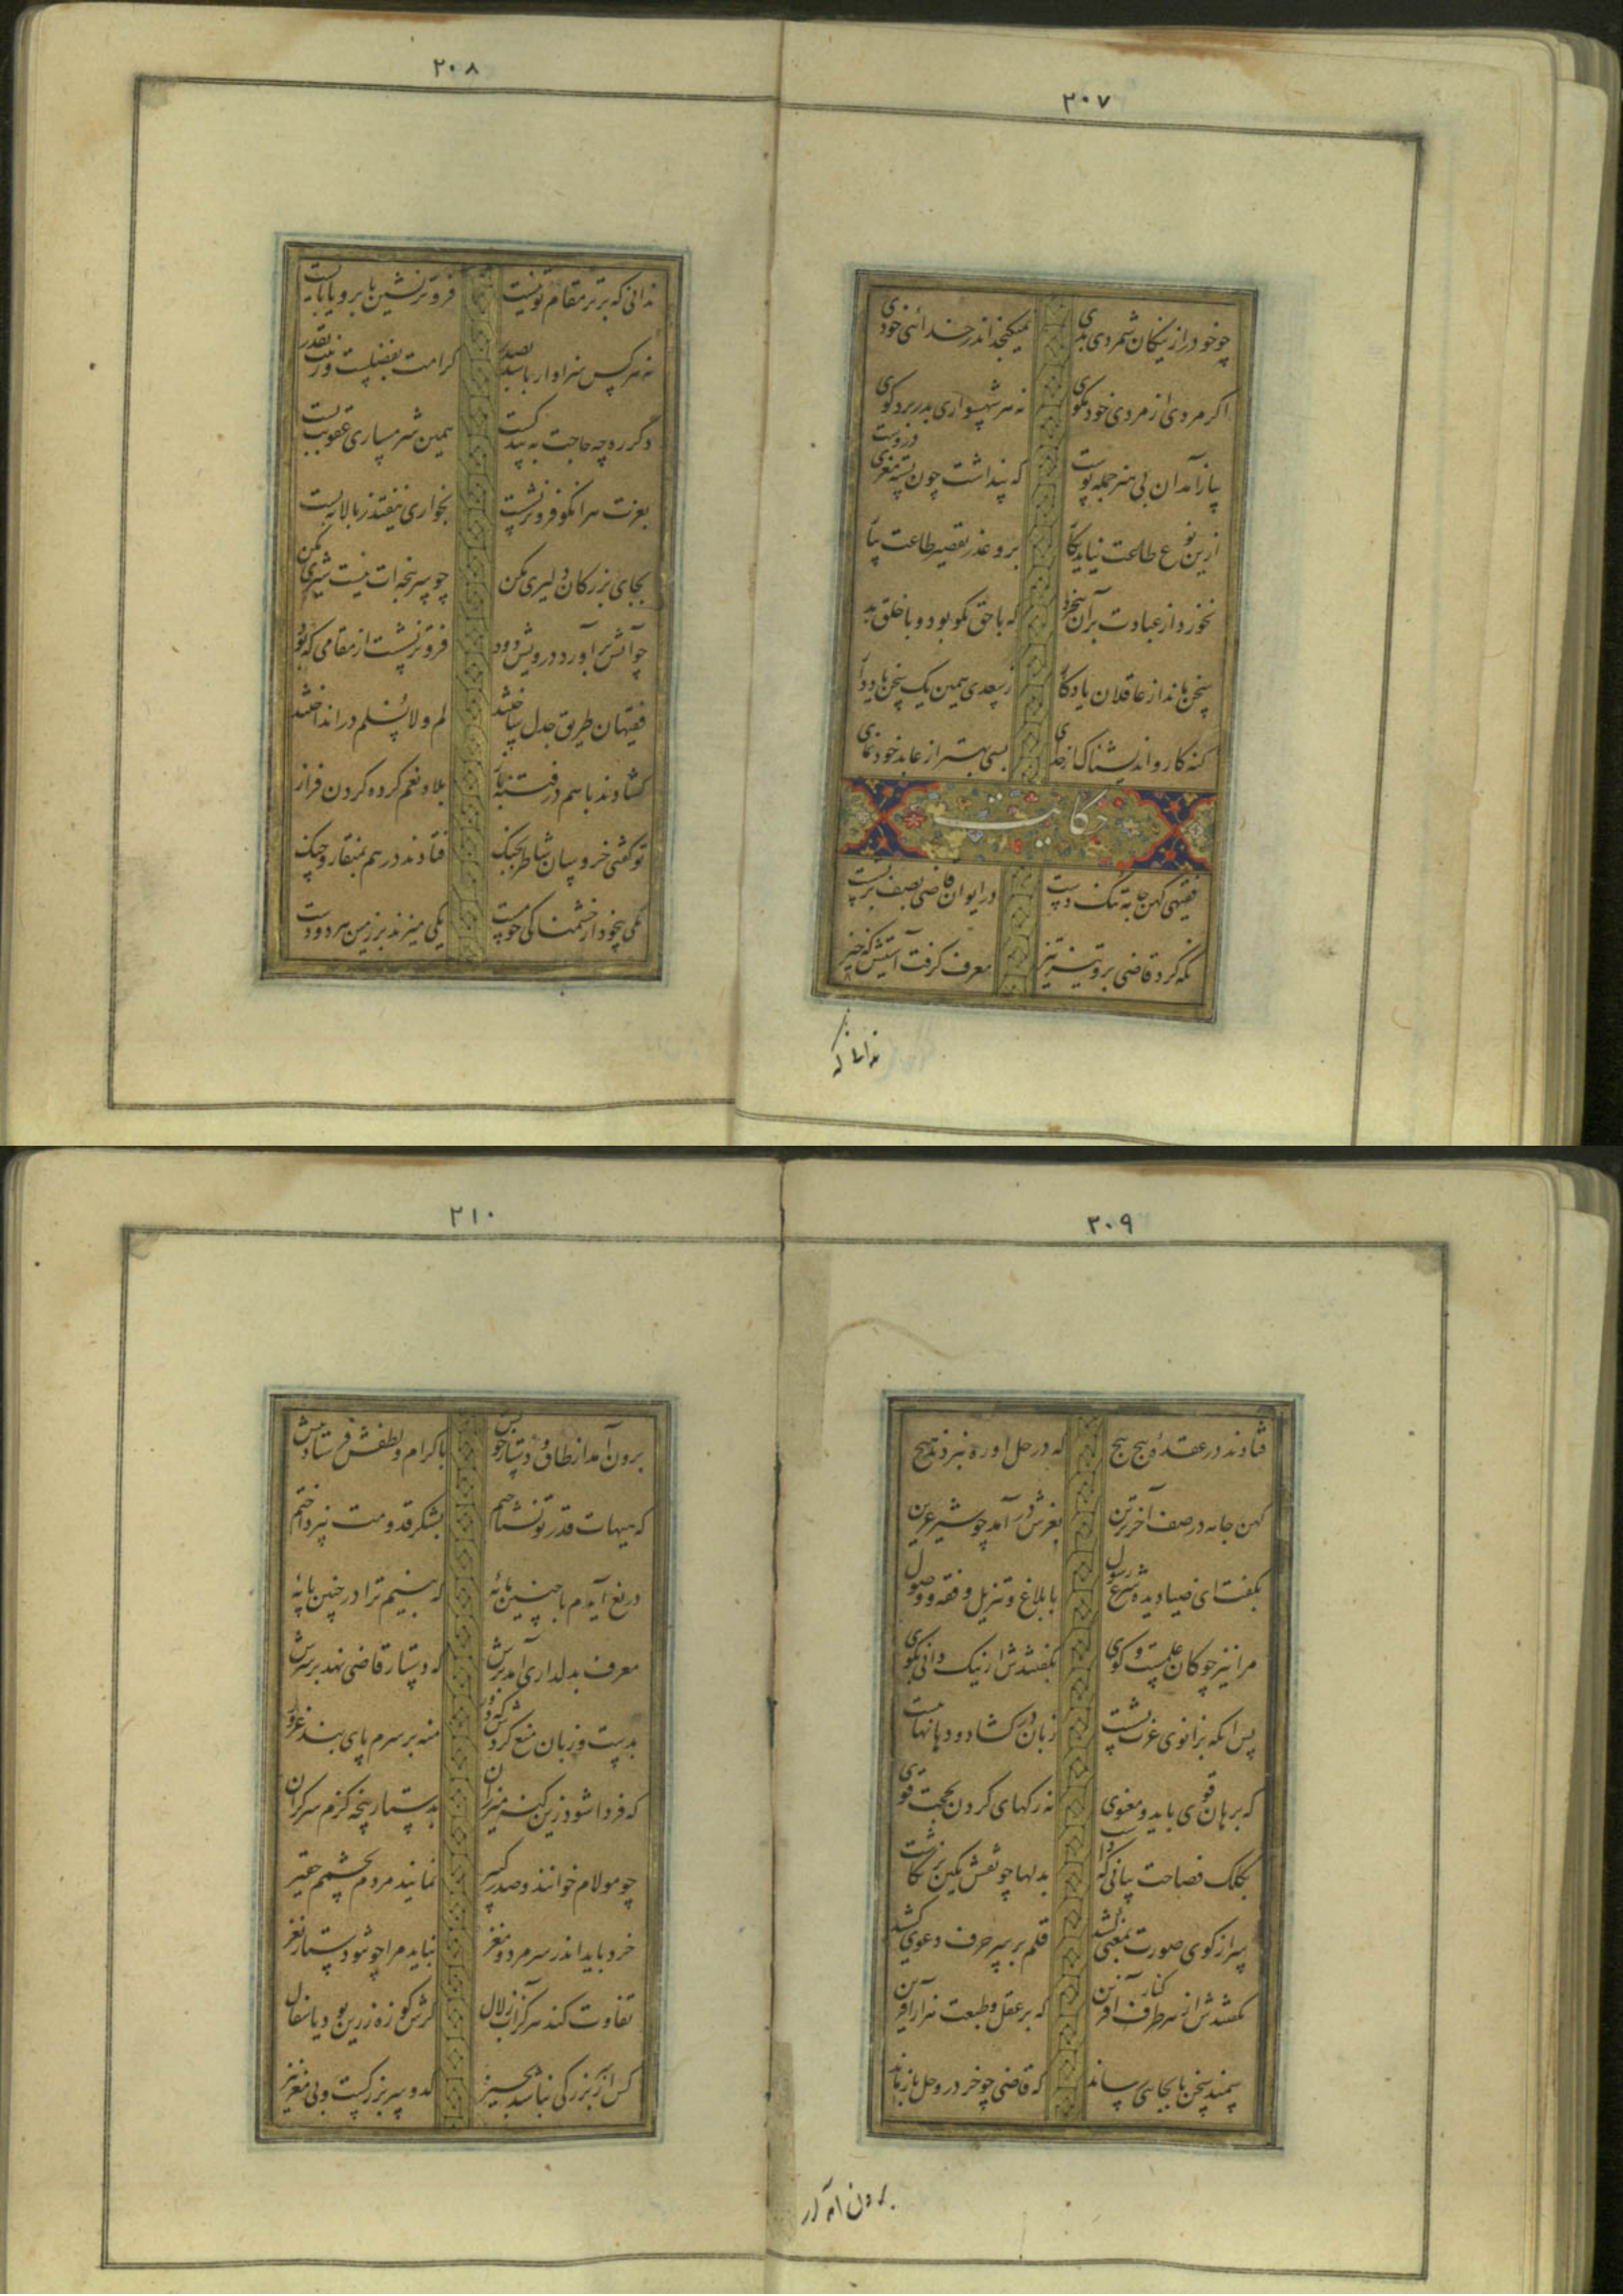 ۲۰۷
چو خود را ز نیکان شمردی بدی نمیگنجد اندر خدائی خودی
اگر مردی از مردی خود مگوی نه هر شهسواری بدر برد گوی
پیاز آمد آن بی هنر جمله پوست که پنداشت چون پسته مغزی دروست
ازین نوع طاعت نیاید بکار برو عذر تقصیر طاعت بیار
نخورد از عبادت بر آن بیخرد که با حق نکو بود و با خلق بد
سخن ماند از عاقلان یادگار ز سعدی همین یک سخن یاد دار
گنه کار و اندیشناک از خدای بسی بهتر از عابد خودنمای
حکایت
فقیهی کهن جامه تنگ دست در ایوان قاضی بصف بر نشست
نگه کرد قاضی برو تیز تیز معرف گرفت آستینش که خیز
ندانی که
۲۰۸
ندانی که برتر مقام تو نیست فروتر نشین یا برو یا بایست
نه هر کس سزاوار باشد بصدر کرامت بفضلست و رتبت بقدر
دگر ره چه حاجت به پند کست همین شرمساری عقوبت بست
بعزت هر آنکو فروتر نشست بخواری نیفتد ز بالا به پست
بجای بزرگان دلیری مکن چو سرپنجه ات نیست شیری مکن
چو آتش برآورد درویش دود فروتر نشست از مقامی که بود
فقیهان طریق جدل ساختند لم و لا نسلم در انداختند
گشادند با هم در فتنه باز بلا و نعم کرده گردن فراز
تو گفتی خروسان شاطر بجنگ فتادند در هم بمنقار و چنگ
یکی بیخود از خشمناکی چو مست یکی میزند بر زمین هر دو دست
۲۰۹
فتادند در عقدهٔ پیچ پیچ که در حل او ره نبردند هیچ
کهن جامه در صف آخرترین بغرش درآمد چو شیر عرین
بگفت ای صنادید شرع رسول بابلاغ و تنزیل و فقه و وصول
مرا نیز چوگان علمست و گوی بگفتندش ار نیک دانی بگوی
پس انگه بزانوی عزت نشست زبان در گشاد و دهانها ببست
که برهان قوی باید و معنوی نه رگهای گردن بحجت قوی
بکلک فصاحت بیانی که داشت بدلها چو نقش نگین برنگاشت
سر از کوی صورت بمعنی کشید قلم بر سر حرف دعوی کشید
بگفتندش از هر طرف آفرین کنار که بر عقل و طبعت هزار آفرین
سمند سخن تا بجایی رساند که قاضی چو خر در وحل باز ماند
برون آمد از
۲۱۰
برون آمد از طاق و دستار خویش باکرام و لطفش فرستاد پیش
که هیهات قدر تو نشناختم بشکر قدومت نپرداختم
دریغ آیدم با چنین مایهٔ که بینم ترا در چنین پایهٔ
معرف بدلداری آمد برش که دستار قاضی نهد بر سرش
بدست و زبان منع کردش که دور منه بر سرم پای بند غرور
که فردا شود زین کهن میزران بدستار پنجه گزم سر گران
چو مولام خوانند و صدر کبیر نمایند مردم بچشمم حقیر
خرد باید اندر سر مرد و مغز نباید مرا چو تو دستار نغز
تفاوت کند هرگز آب زلال گرش کوزه زرین بود یا سفال
کس از سر بزرگی نباشد بچیز کدو سر بزرگست و بی مغز نیز